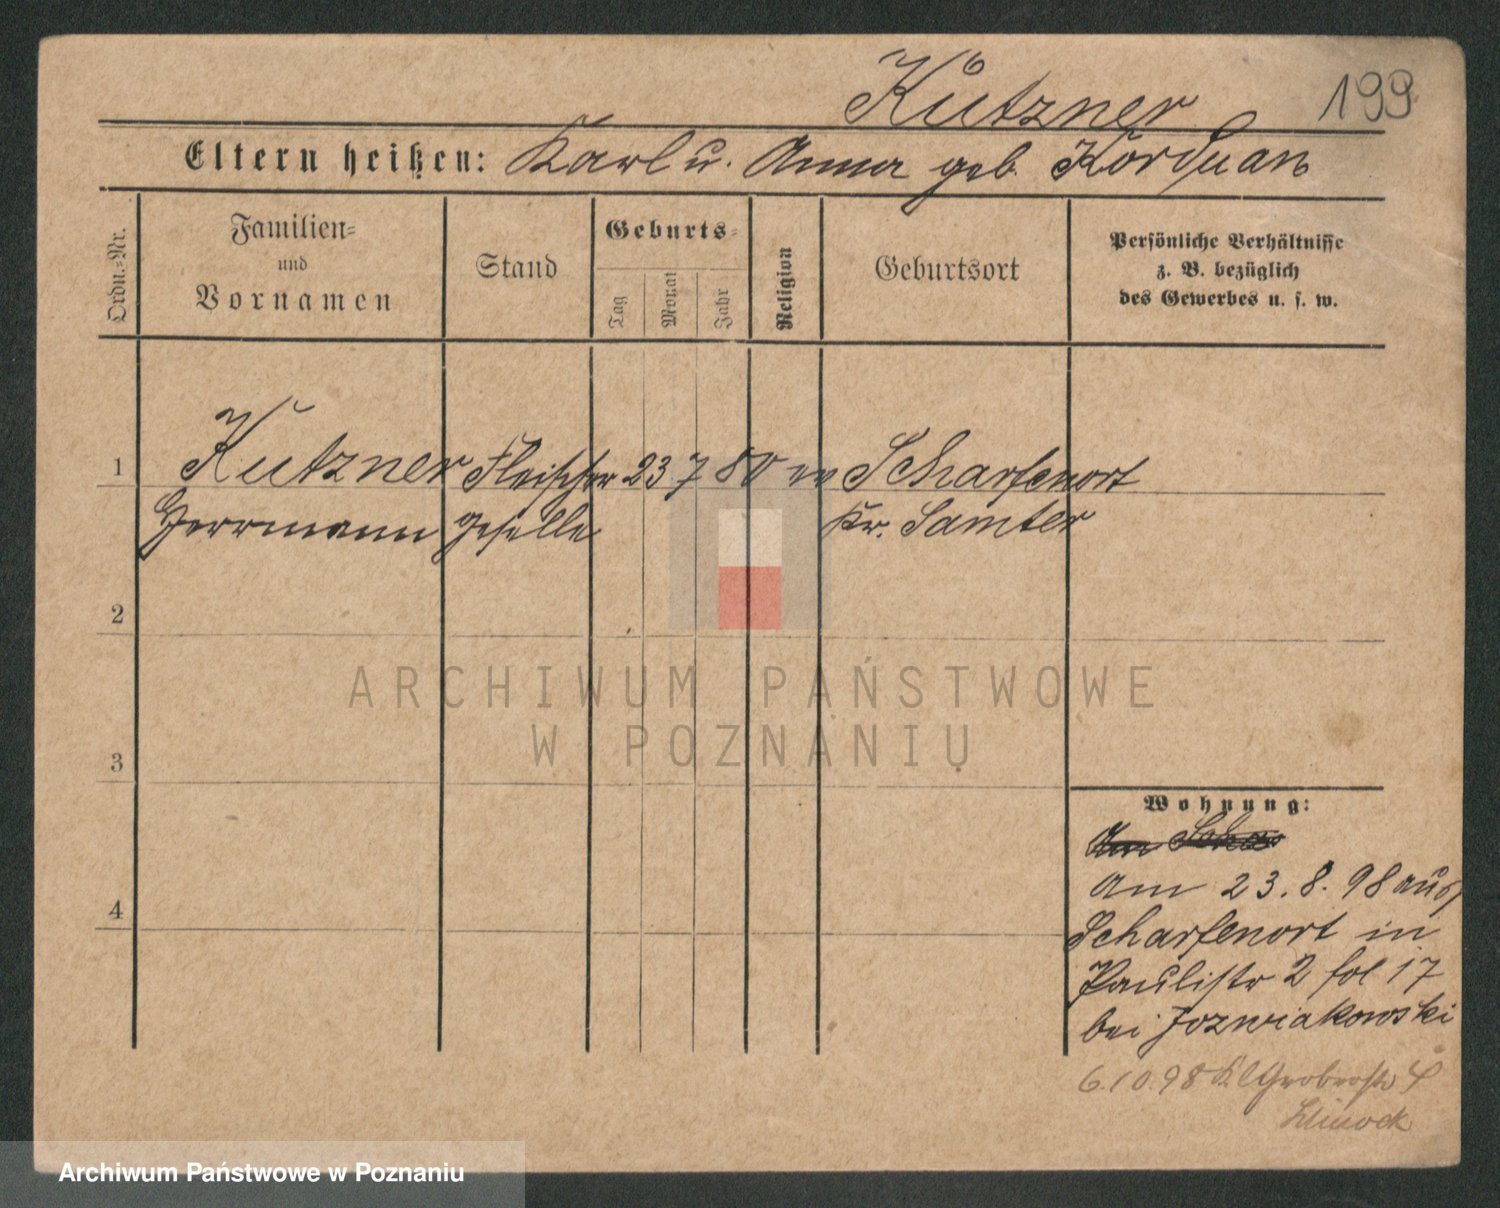 Kutzner 199
Eltern heißen: Karl u. Anna geb. Korduan
Ordn.-Nr.
Familien-
und
Vornamen
Stand
Geburts-
Tag
Monat
Jahr
Religion
Geburtsort
Persönliche Verhältnisse
z. B. bezüglich
des Gewerbes u. s. w.
1 Kutzner Fleischer 23 7 80 ev Scharfenort
Herrmann geselle Kr. Samter
2
3
4
ARCHIWUM PAŃSTWOWE
W POZNANIU
Wohnung:
Am
Am 23.8.98 aus
Scharfenort in
Paulistr 2 fol 17
bei Jozwiakowski
6.10.98 Kl Gerberstr 4
Archiwum Państwowe w Poznaniu